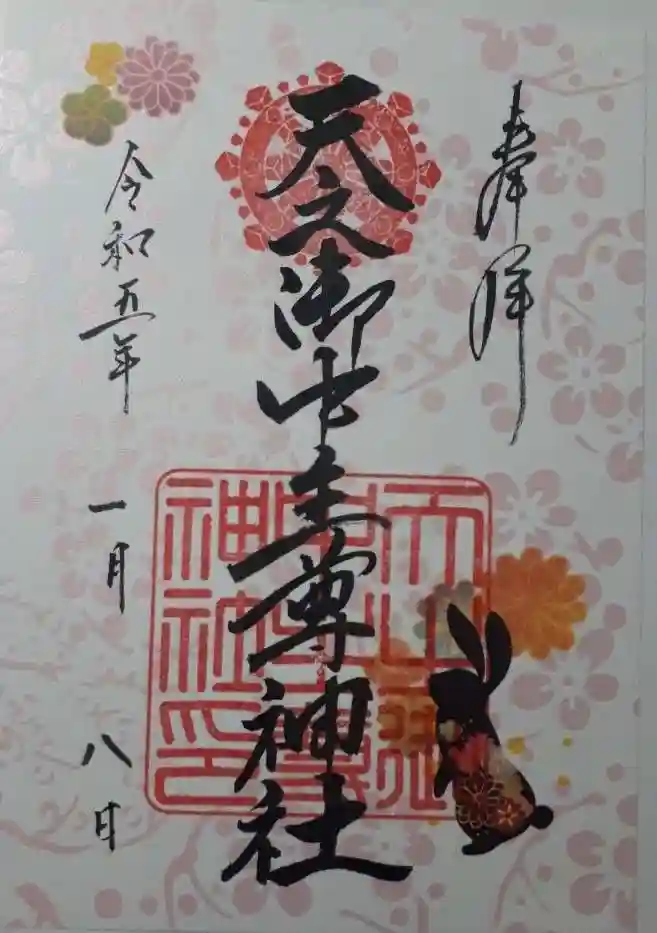 奉拝
天之御中主尊神社
天之御中主尊神社印
令和五年一月八日